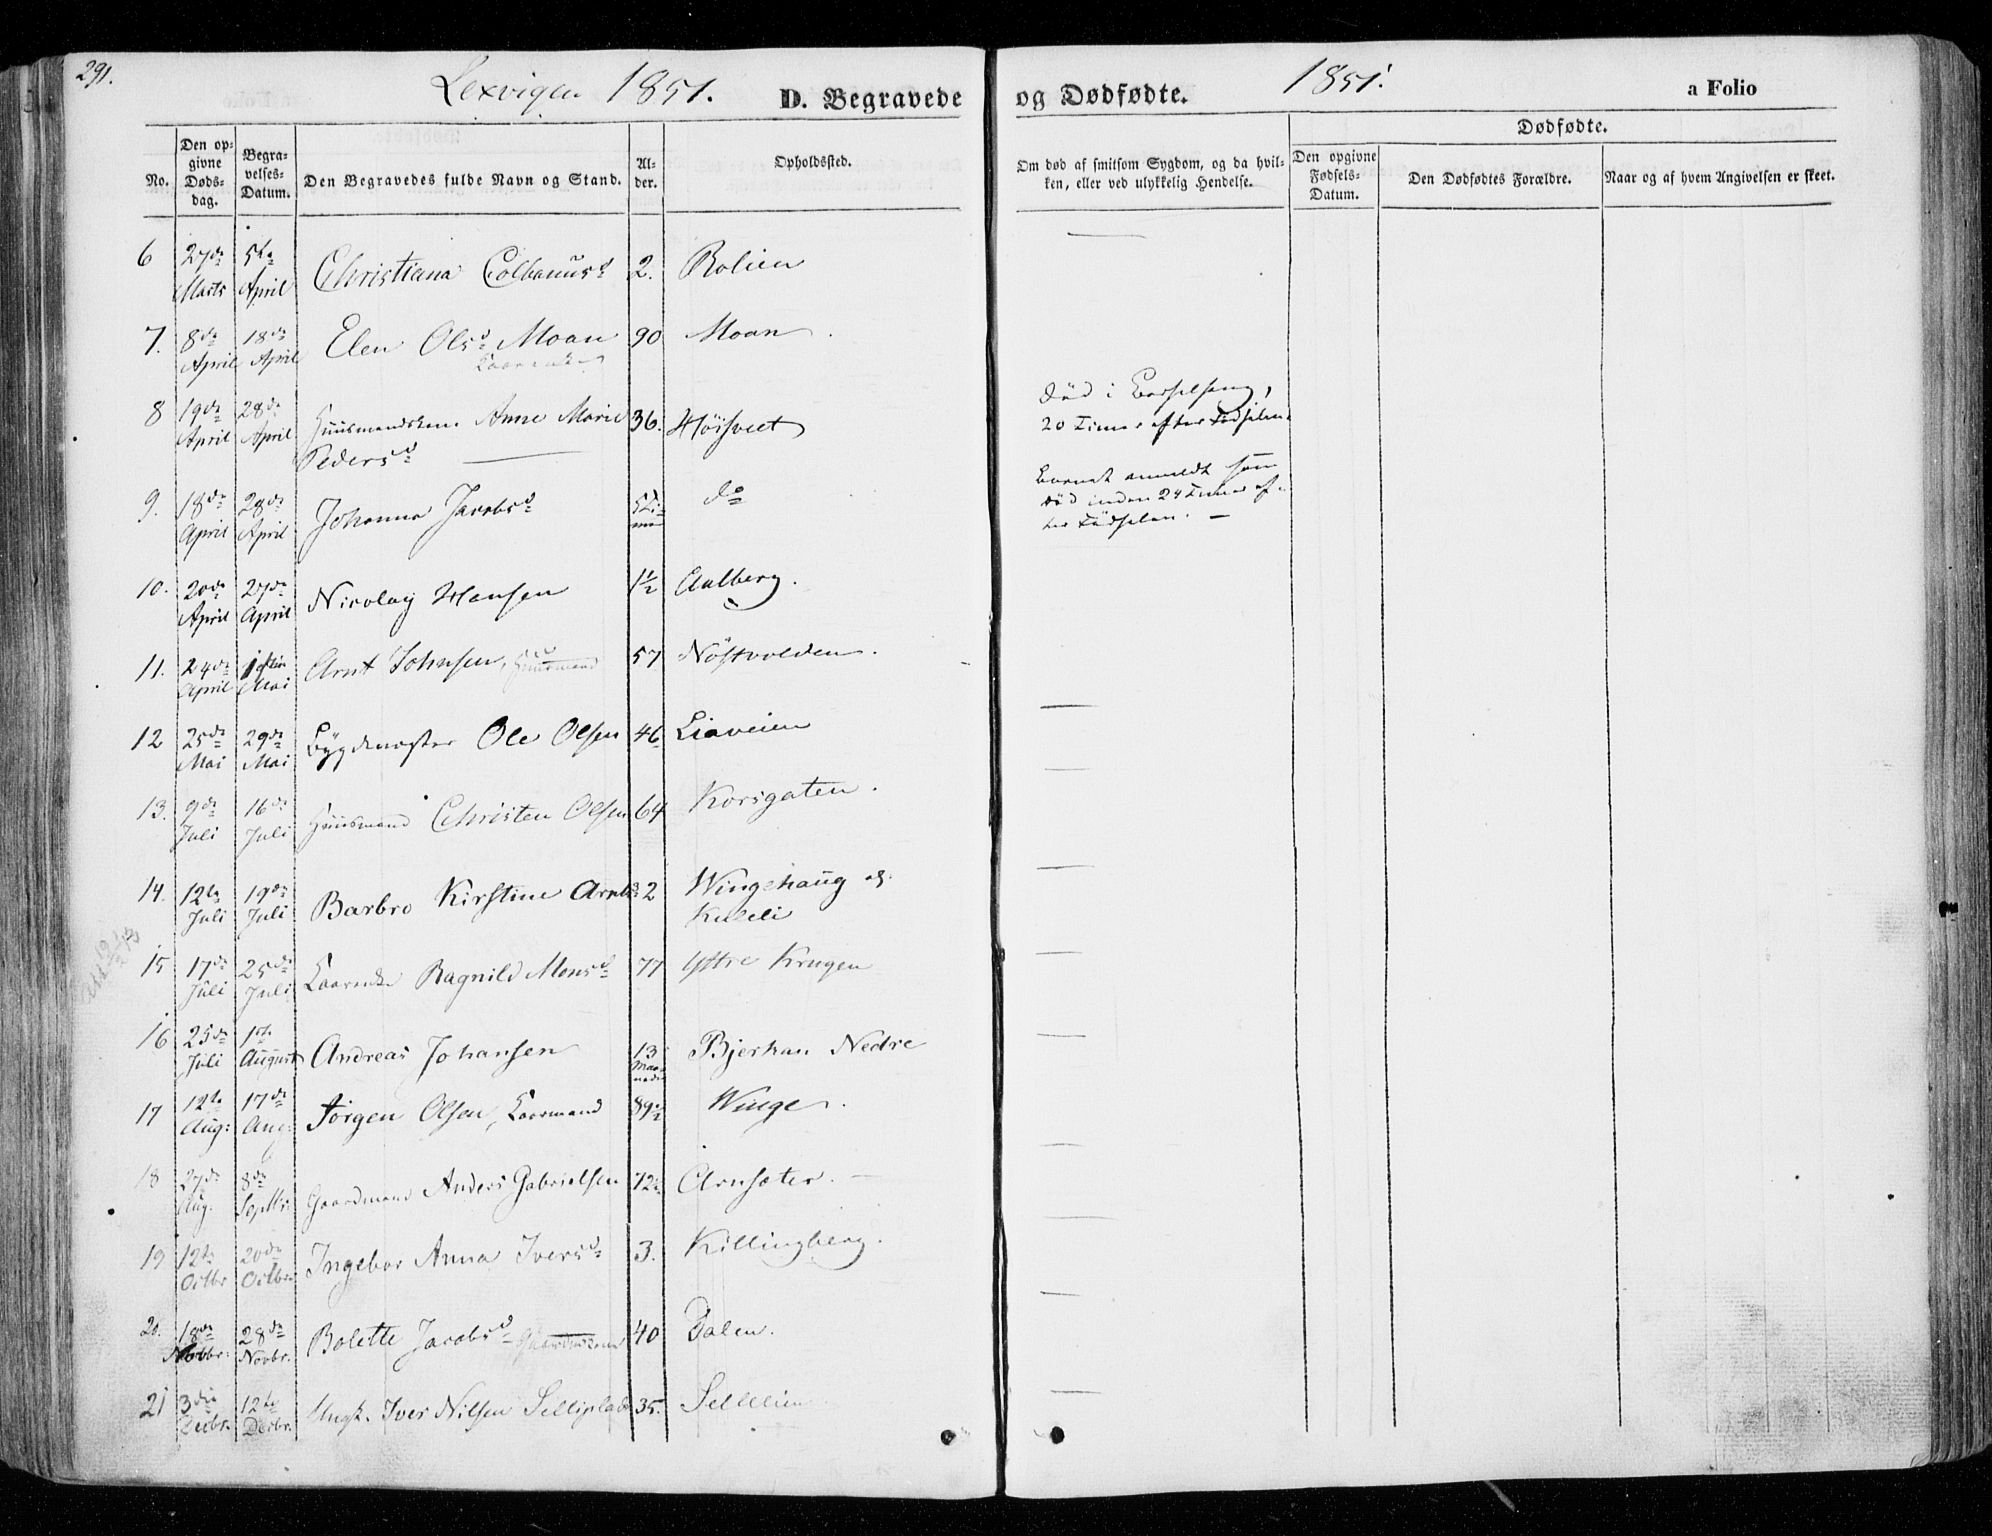 291.
Lexvigen 1851. D. Begravede og Dødfødte. 1851. a Folio
No. Den op- givne Døds- dag. Begra- velses- Datum. Den Begravedes fulde Navn og Stand. Al- der. Opholdssted. Om død af smitsom Sygdom, og da hvil- ken, eller ved ulykkelig Hendelse. Dødfødte. Den opgivne Fødsels- Datum. Den Dødfødtes Forældre. Naar og af hvem Angivelsen er skeet.
6 27de Marts 5te April Christiana Colbanusd 2. Rolien
7. 8de April 18de April Elen Olsd Moan 90 Moan
8 19de April 28de April Huusmandskone Anne Marie Pedersd 36. Höisveet död i Barselseng, 20 Timer efter Födselen.
9. 18de April 28de April Johanna Jacobsd 5 Ti- mer do Barnet anmeldt som död inden 24 Timer ef- ter Födselen. —
10. 20de April 27de April Nicolay Hansen 1½ Aalberg.
11. 24de April Mai Arnt Johnsen, Huusmand 57 Nöstvolden.
12 25de Mai 29de Mai Bygdmester Ole Olsen 46 Liaveien
13. 9de Juli 16de Juli Huusmand Christen Olsen 64 Korsgaten.
14. 12te Juli 19de Juli Barbro Kirstine 2 Wingehaug og
15 17de Juli 25de Juli Ragnild Monsd 77 Yttre Krugen
16 25de Juli 1ste August Andreas Johansen 13 Maa- neder Bjerkan Nedre
17 12te Aug: 17de Aug: Jörgen Olsen, Kaarmand 89½ Winge.
18 27de Aug. 8de Septbr: Gaardmand Anders Gabrielsen 72 Arnsæter. —
19 12te Octbr 20de Octbr: Ingebor Anna Iversd 3. Killingberg.
20. 18de Novbr: 28de Novbr. Bolette Jacobsd 40 Dalen.
21 3die Decbr. 12te Decbr. Ungk. Iver Nilsen 35.